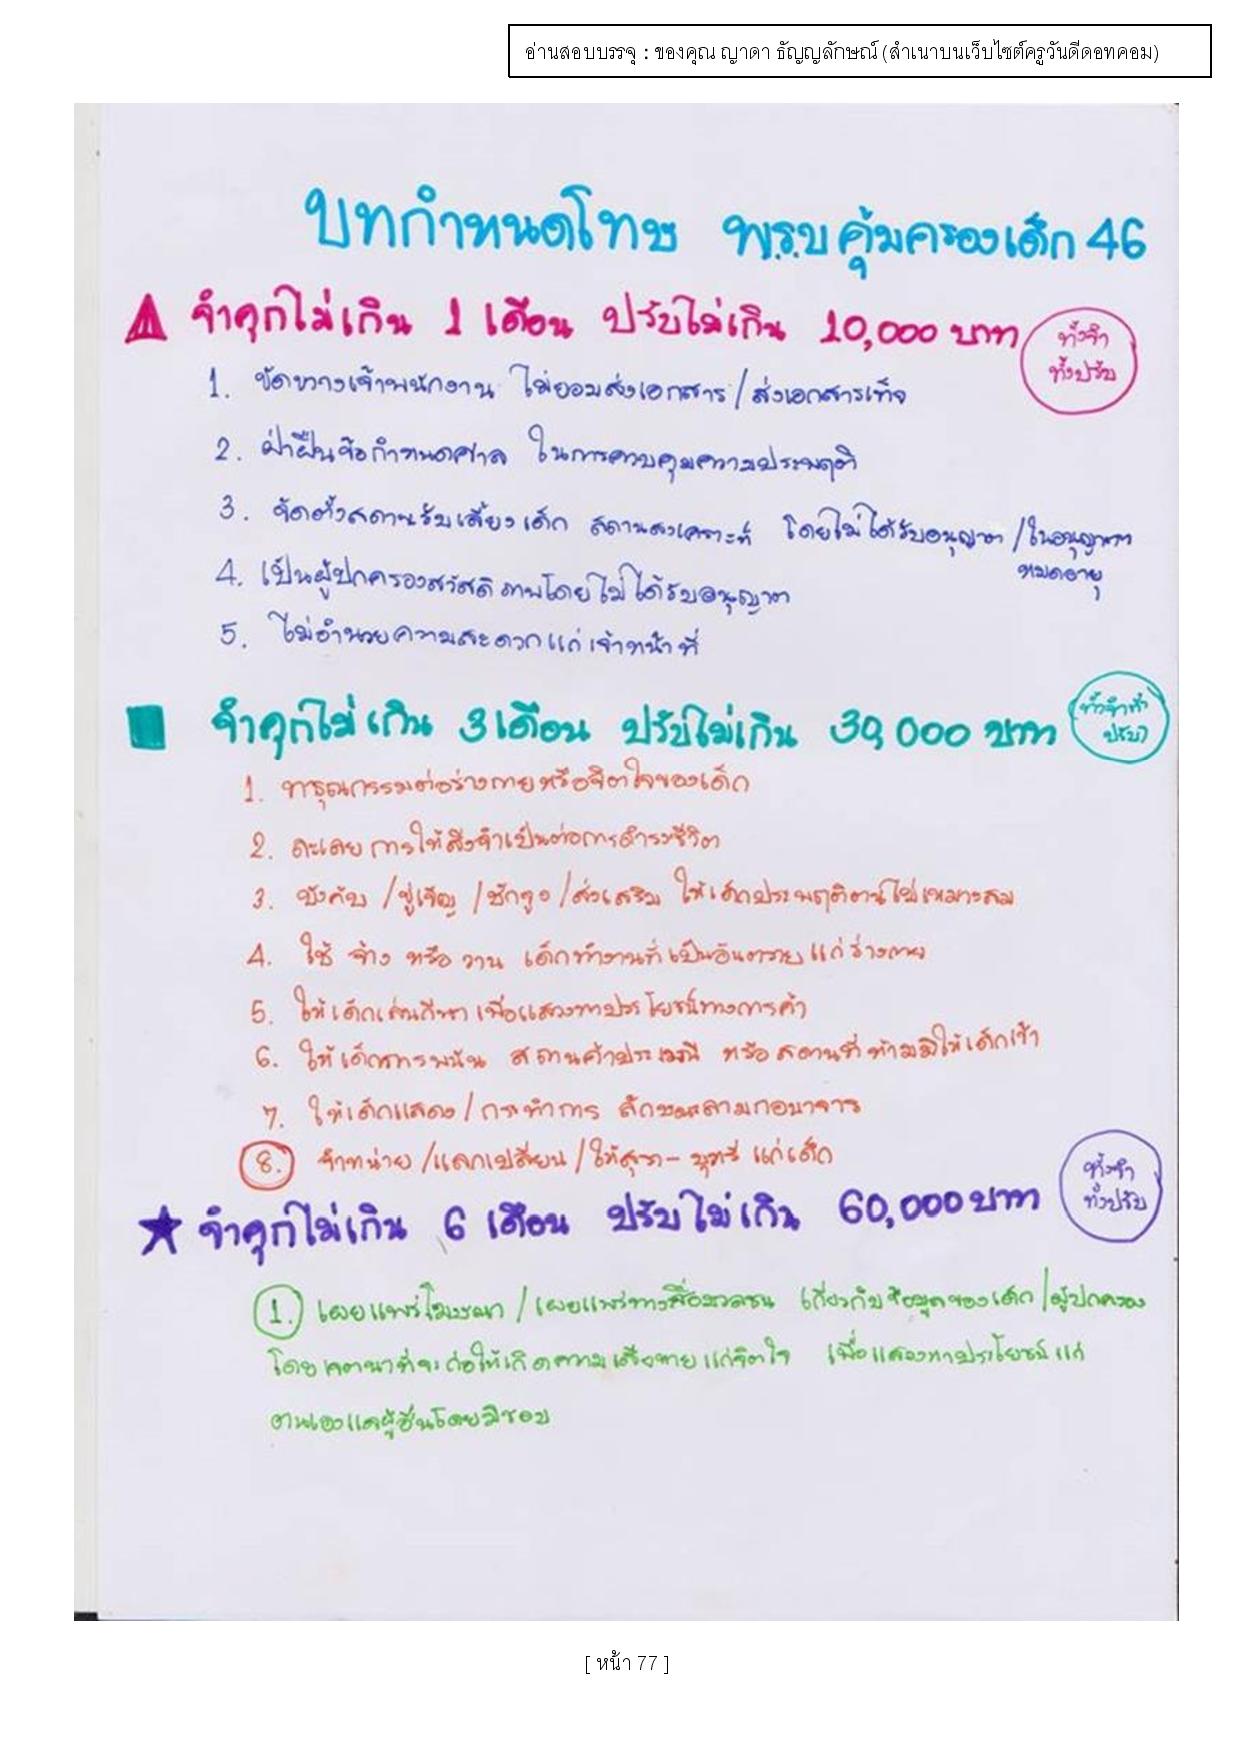 อ่านสอบบรรจุ : ของคุณ ญาดา ธัญญลักษณ์ (สำเนาบนเว็บไซต์ครูวันดีดอทคอม)
บทกำหนดโทษ พ.ร.บ คุ้มครองเด็ก 46
จำคุกไม่เกิน 1 เดือน ปรับไม่เกิน 10,000 บาท
ทั้งจำ
ทั้งปรับ
1. ขัดขวางเจ้าพนักงาน ไม่ยอมส่งเอกสาร / ส่งเอกสารเท็จ
2. ฝ่าฝืนข้อกำหนดศาล ในการควบคุมความประพฤติ
3. จัดตั้งสถานรับเลี้ยงเด็ก สถานสงเคราะห์ โดยไม่ได้รับอนุญาต / ใบอนุญาต
หมดอายุ
4. เป็นผู้ปกครองสวัสดิภาพโดยไม่ได้รับอนุญาต
5. ไม่อำนวยความสะดวกแก่เจ้าหน้าที่
จำคุกไม่เกิน 3 เดือน ปรับไม่เกิน 30,000 บาท
ทั้งจำทั้ง
ปรับ
1. ทารุณกรรมต่อร่างกายหรือจิตใจของเด็ก
2. ละเลยการให้สิ่งจำเป็นต่อการดำรงชีวิต
3. บังคับ / ขู่เข็ญ / ชักจูง / ส่งเสริม ให้เด็กประพฤติตนไม่เหมาะสม
4. ใช้ จ้าง หรือ วาน เด็กทำงานที่เป็นอันตรายแก่ร่างกาย
5. ให้เด็กเล่นกีฬา เพื่อแสวงหาประโยชน์ทางการค้า
6. ให้เด็กการพนัน สถานค้าประเวณี หรือ สถานที่ห้ามมิให้เด็กเข้า
7. ให้เด็กแสดง / กระทำการ ลักษณะลามกอนาจาร
8. จำหน่าย / แลกเปลี่ยน / ให้สุรา - บุหรี่ แก่เด็ก
จำคุกไม่เกิน 6 เดือน ปรับไม่เกิน 60,000 บาท
ทั้งจำ
ทั้งปรับ
1. เผยแพร่โฆษณา / เผยแพร่ทางสื่อมวลชน เกี่ยวกับข้อมูลของเด็ก / ผู้ปกครอง
โดยเจตนาที่จะก่อให้เกิดความเสียหายแก่จิตใจ เพื่อแสวงหาประโยชน์แก่
ตนเองและผู้อื่นโดยมิชอบ
[ หน้า 77 ]